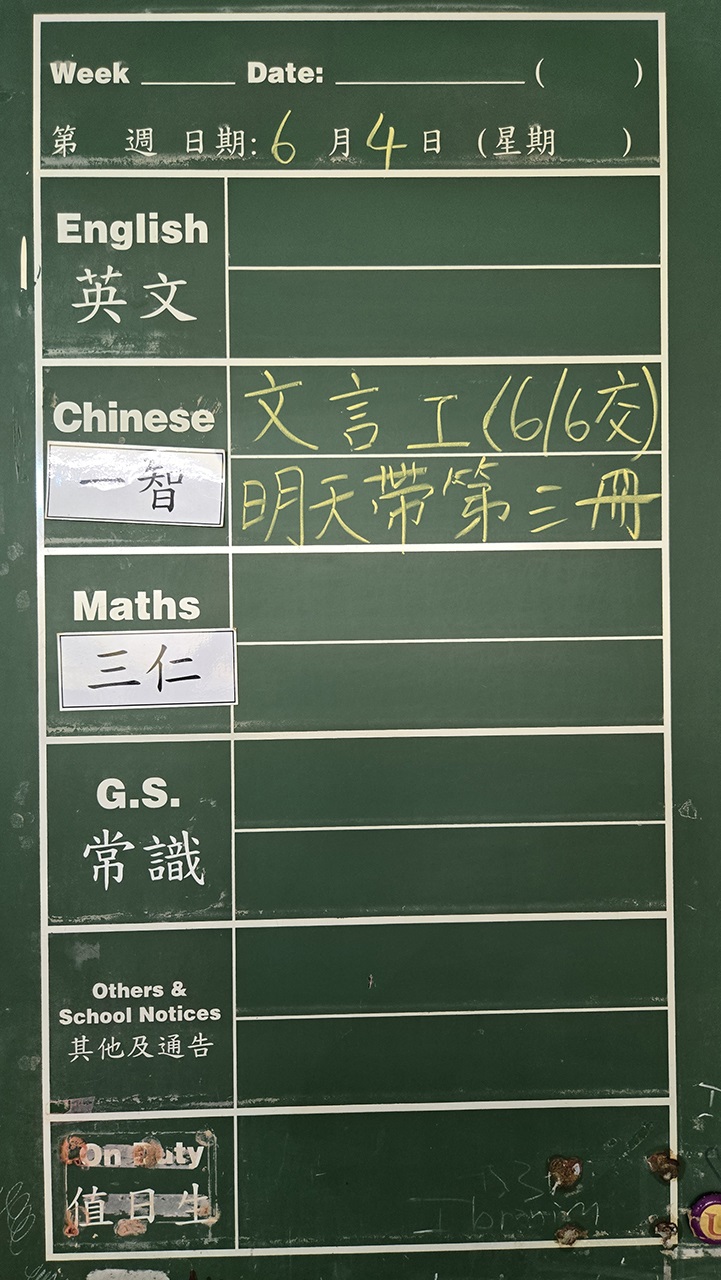 Week ______ Date: ____________ ( )
第 週 日期: 6 月 4 日 (星期 )
English
英文
Chinese
一智
文言工(6/6交)
明天帶第三冊
Maths
三仁
G.S.
常識
Others &
School Notices
其他及通告
On Duty
值日生